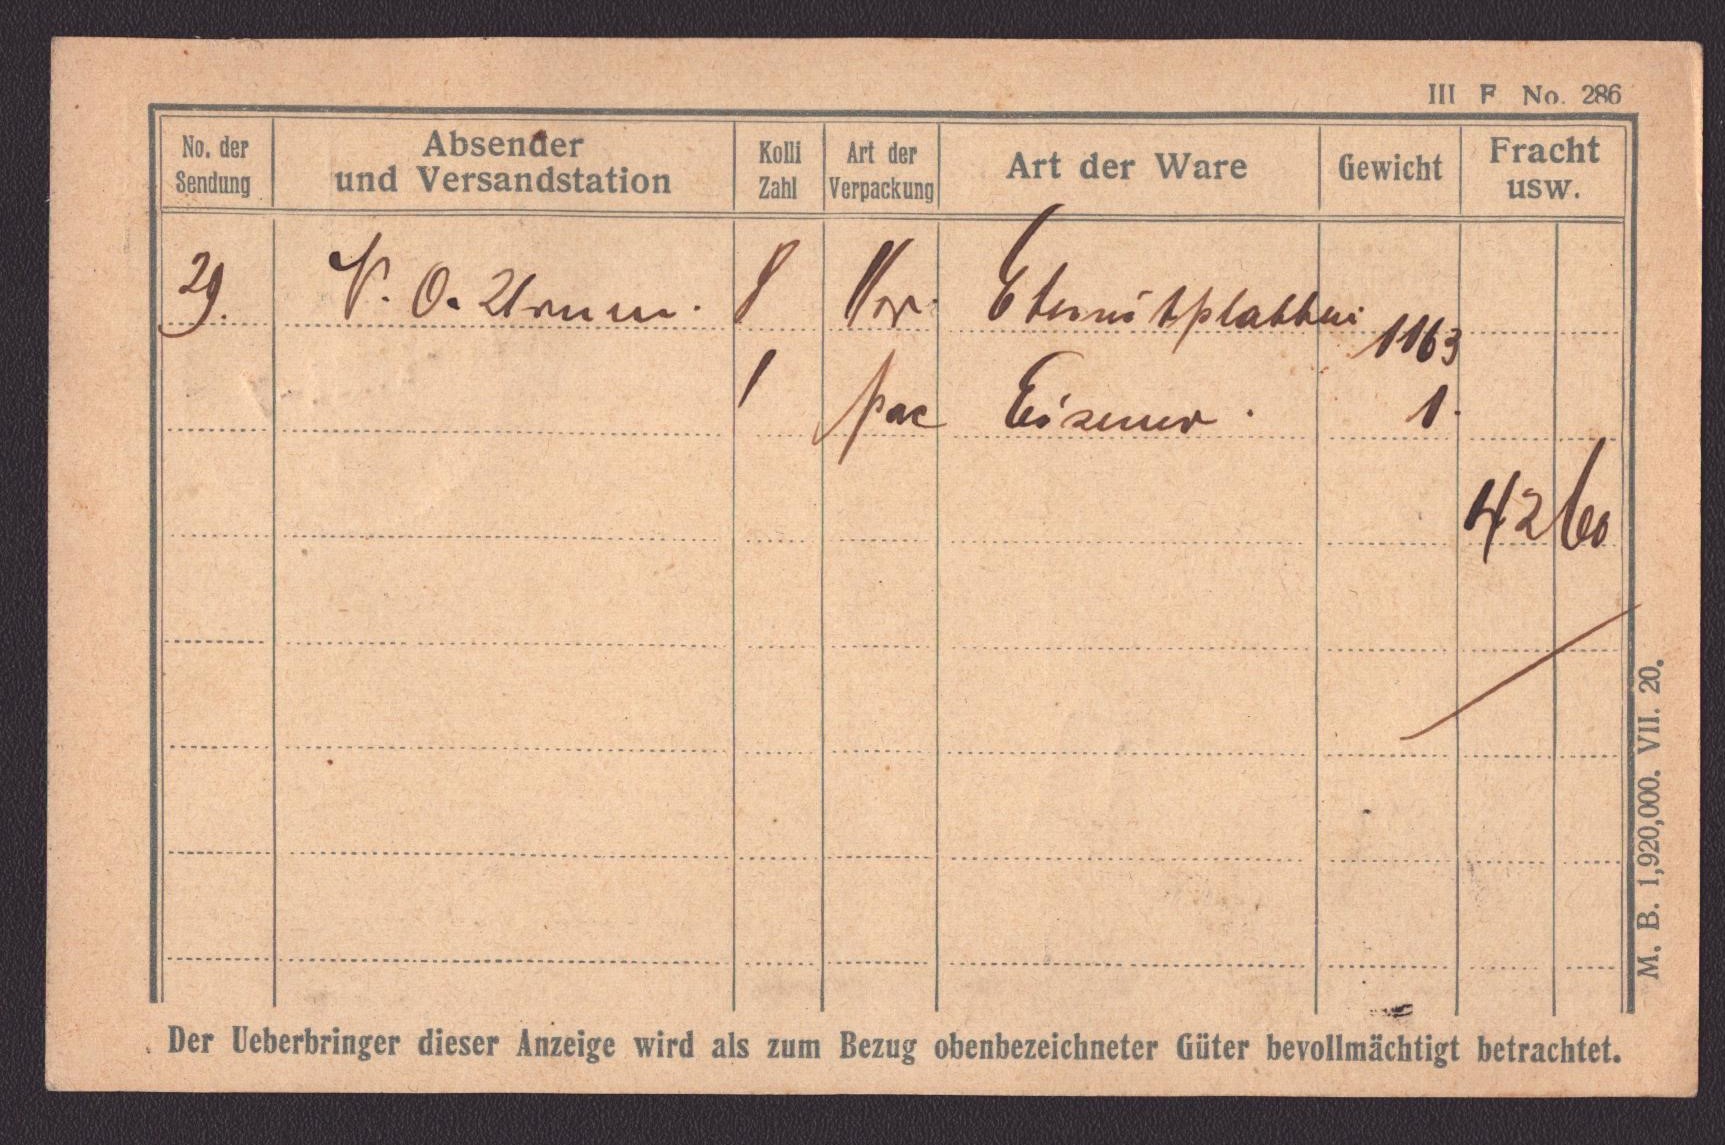 III F No. 286
No. der Sendung Absender und Versandstation Kolli Zahl Art der Verpackung Art der Ware Gewicht Fracht usw.
29. O. 8 Eternitplatten 1163
1 pac Eisener. 1.
42 60
M. B. 1,920,000. VII. 20.
Der Ueberbringer dieser Anzeige wird als zum Bezug obenbezeichneter Güter bevollmächtigt betrachtet.